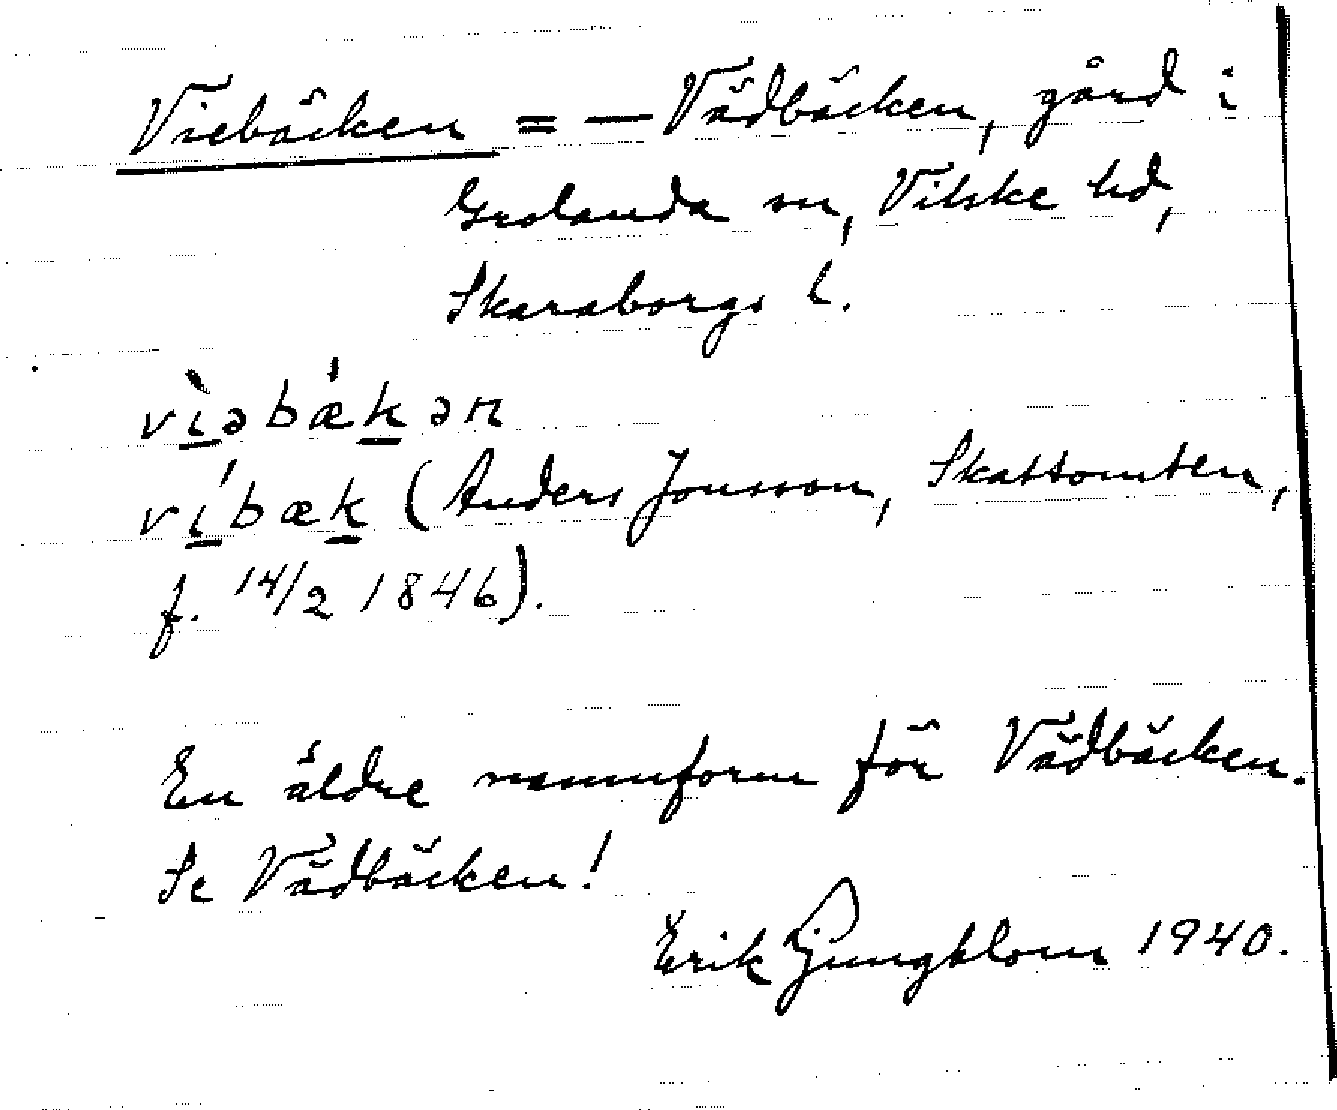 Viebäcken = — Vädbäcken, gård i
Grolanda sn, Vilske hd,
Skaraborgs l.
vìəbǽkən
víbæk (Anders Jonsson, Skattomten,
f. 14/2 1846).
En äldre namnform för Vädbäcken.
Se Vädbäcken!
Erik Ljungblom 1940.